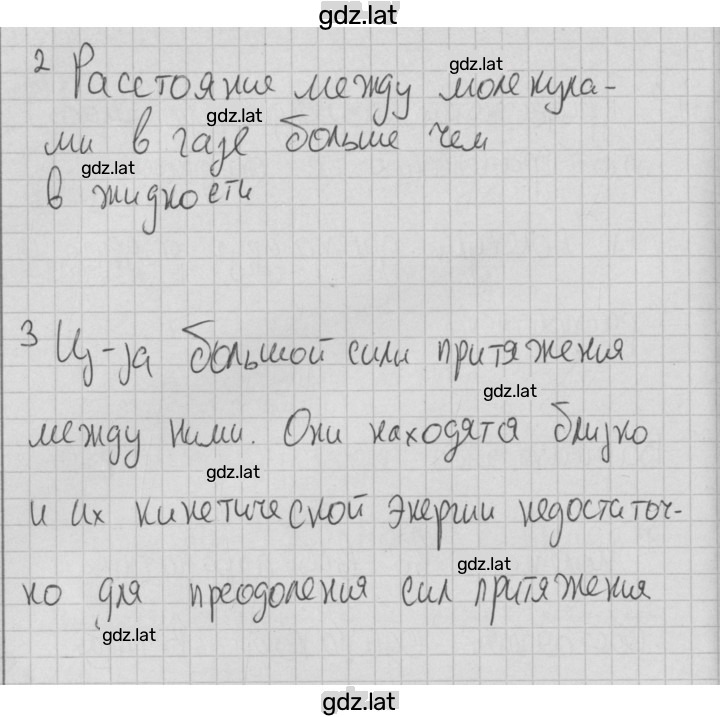 gdz.lat
2 Расстояние между молекула-
gdz.lat
ми в газе больше чем
gdz.lat
в жидкости
gdz.lat
3 Из-за большой сили притяжения
gdz.lat
между ними. Они находятся близко
gdz.lat
и их кинетической энергии недостаточ-
но для преодоления сил притяжения
gdz.lat
gdz.lat
gdz.lat